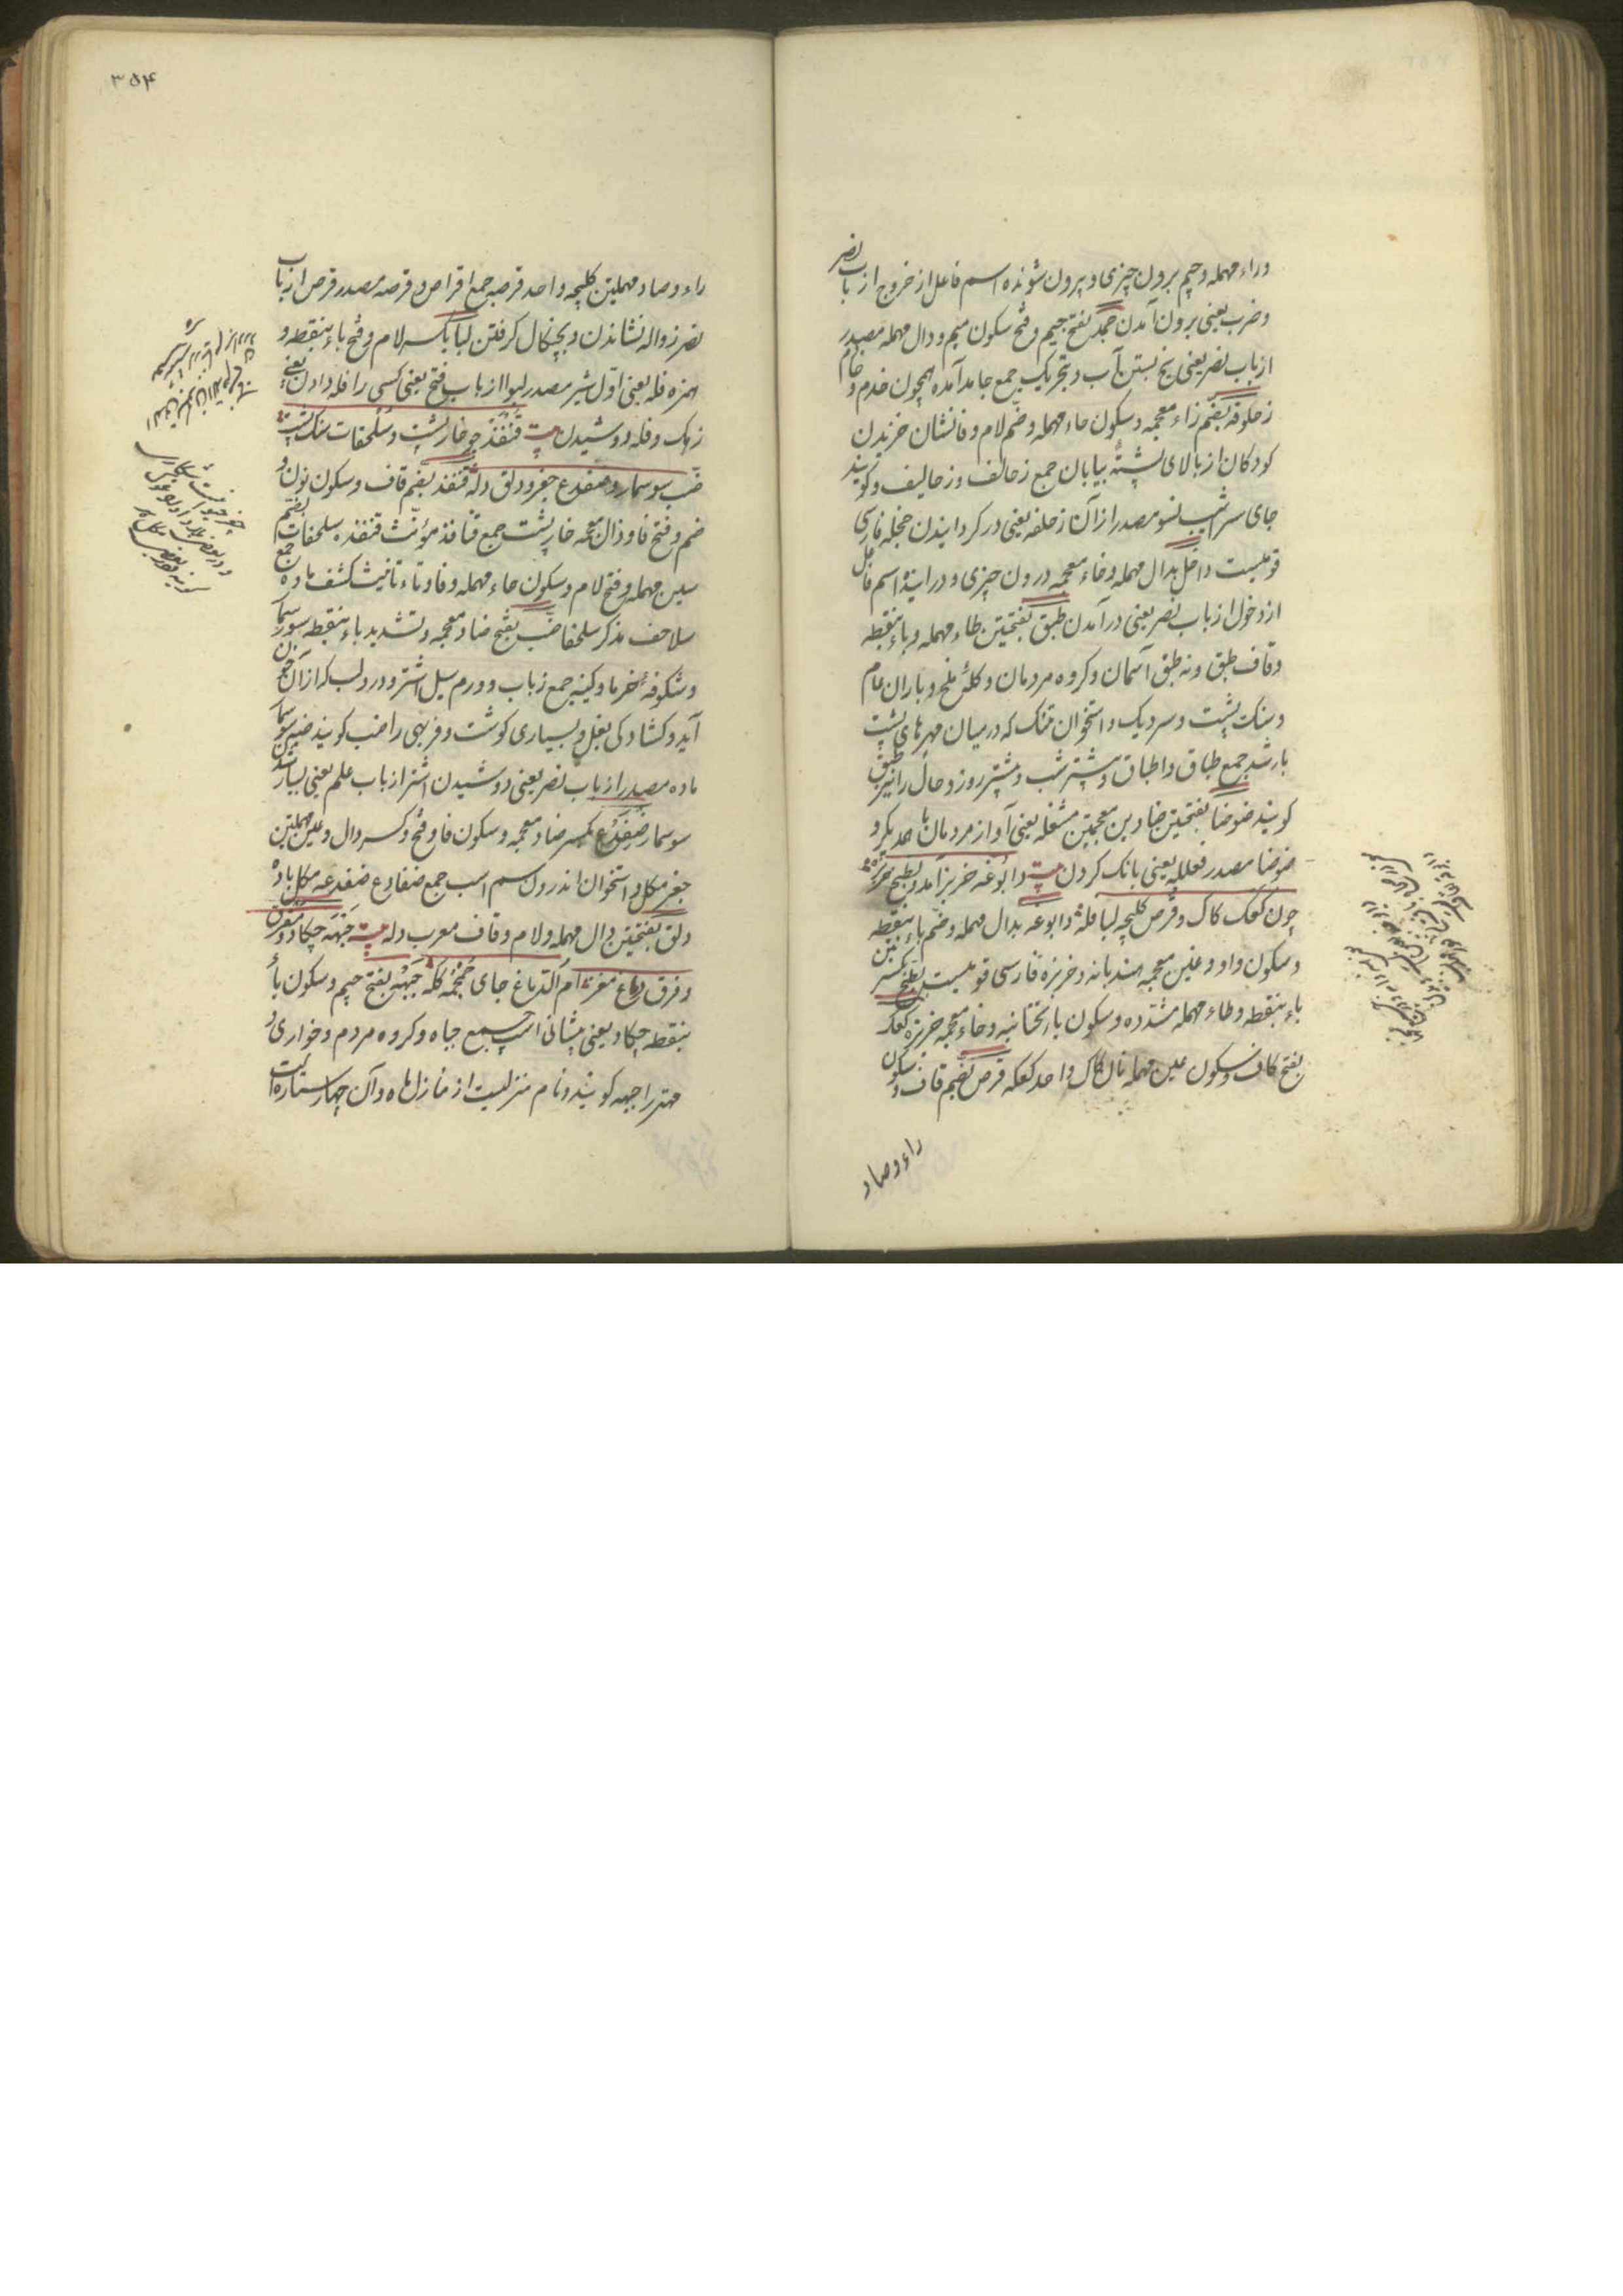 وراء مهمله وجیم برون چیزی و بیرون شونده اسم فاعل از خروج از باب نصر
وضرب یعنی برون آمدن جمد بفتح جیم وفتح سکون میم ودال مهمله مصدر
از باب نصر یعنی یخ بستن آب وبتحریک جمع جامد آمده همچون خدم و خادم
زحلوقه بضم زاء معجمه وسکون حاء مهمله وضم لام وفا نشان خزیدن
کودکان از بالای پشته بیابان جمع زحالف وزحالیف وکویند
جای سراشیب نسو مصدر از آن زحلفه یعنی در کردانیدن حجله فارسی
قومیست داخل بدال مهمله وخاء معجمه درون چیزی ودراینده اسم فاعل
از دخول از باب نصر یعنی درآمدن طبق بفتحتین طاء مهمله وباء بنقطه
وقاف طبق ونه طبق آسمان وکروه مردمان وکله ملخ وباران عام
وسنک پشت وسر دیک واستخوان تنک که درمیان مهرهای پشت
باشد جمع طباق واطباق وبیشتر شب وبیشتر روز وحال را نیز طبق
کویند ضوضا بفتحتین ضادین معجمتین مشغله یعنی آواز مردمان با همدیکر و
ضوضا مصدر فعلله یعنی بانک کردن بیت دابوغه خربز آمد وبطیخ خربزه
چون کعک کاک وقرص کلیچه لبا فله دابوغه بدال مهمله وضم باء بنقطه
وسکون واو وغین معجمه هندبانه وخربزه فارسی قومیست بطیخ بکسر تین
باء بنقطه وطاء مهمله مشدده وسکون یاء تحتانیه وخاء معجمه خربزه کعک
بفتح کاف وسکون عین مهمله نان کاک واحد کعکه قرص بضم قاف وسکون
راء وصاد
۳۵۴
راء وصاد مهملتین کلیچه واحد قرصه جمع اقراص وقرصه مصدر قرص از باب
نصر زواله نشاندن وبچنکال کرفتن لبا بکسر لام وفتح باء بنقطه و
همزه فله یعنی اول شیر مصدر لبوا از باب فتح یعنی کسی را فله دادن یعنی
زهک وفله دوشیدن بیت قنفذ چو خارپشت وسلحفات سنک پشت
ضب سوسمار وضفدع جغز ودلق دله قنفذ بضم قاف وسکون نون و
ضم وفتح فا وذال معجمه خارپشت جمع قنافذ مؤنث قنفذه سلحفات بضم
سین مهمله وفتح لام وسکون حاء مهمله وفا وتاء تانیث کشف ماده جمع
سلاحف مذکر سلحفا ضب بفتح ضاد معجمه وتشدید باء بنقطه سوسمار
وشکوفه خرما وکینه جمع زباب وورم سبل اشتر ودرد لب که از آن خون
آید وکشادکی بغل وبسیاری کوشت وفربهی را ضب کویند ضبه سوسمار
ماده مصدر از باب نصر یعنی دوشیدن اشتر از باب علم یعنی بسیار شدن
سوسمار ضفدع بکسر ضاد معجمه وسکون فا وفتح وکسر دال وعین مهملتین
جغز مکل واستخوان اندرون سم اسب جمع ضفادع ضفدعه مکل ماده
دلق بفتحتین دال مهمله ولام وقاف معرب دله بیت جبهه چکاد ومفرق
وفرق دماغ مغز ام الدماغ جای جمجمه کله جبهه بفتح جیم وسکون باء
بنقطه چکاد یعنی پیشانی اسب جمع جباه وکروه مردم وخواری و
مهتر را جبهه کویند ونام منزلیست از منازل ماه وآن چهار ستاره است